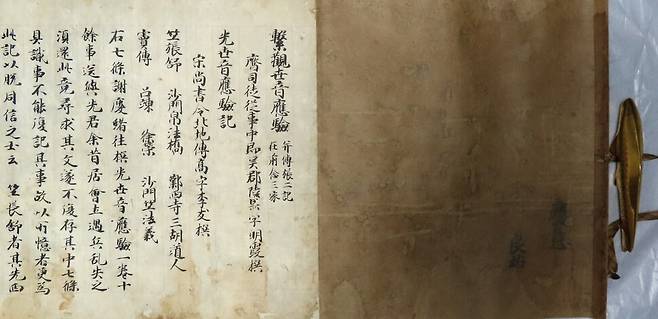 繫觀世音應驗 并傅張二記
齊司徒從事中郎吳郡陸杲字明霞撰
光世音應驗記
宋尚書令北地傅亮字季友撰
竺張舒 沙門帛法橋 鄴西寺三胡道人
竇傳 呂竦 徐榮 沙門竺法義
右七條謝慶緒往撰光世音應驗一卷十
餘事送與先君余昔居會土遇兵亂失之
頃還此竟尋求其文遂不復存其中七條
具識事不能復記其事故以所憶者更為
此記以悅同信之士云 竺長舒者其先西